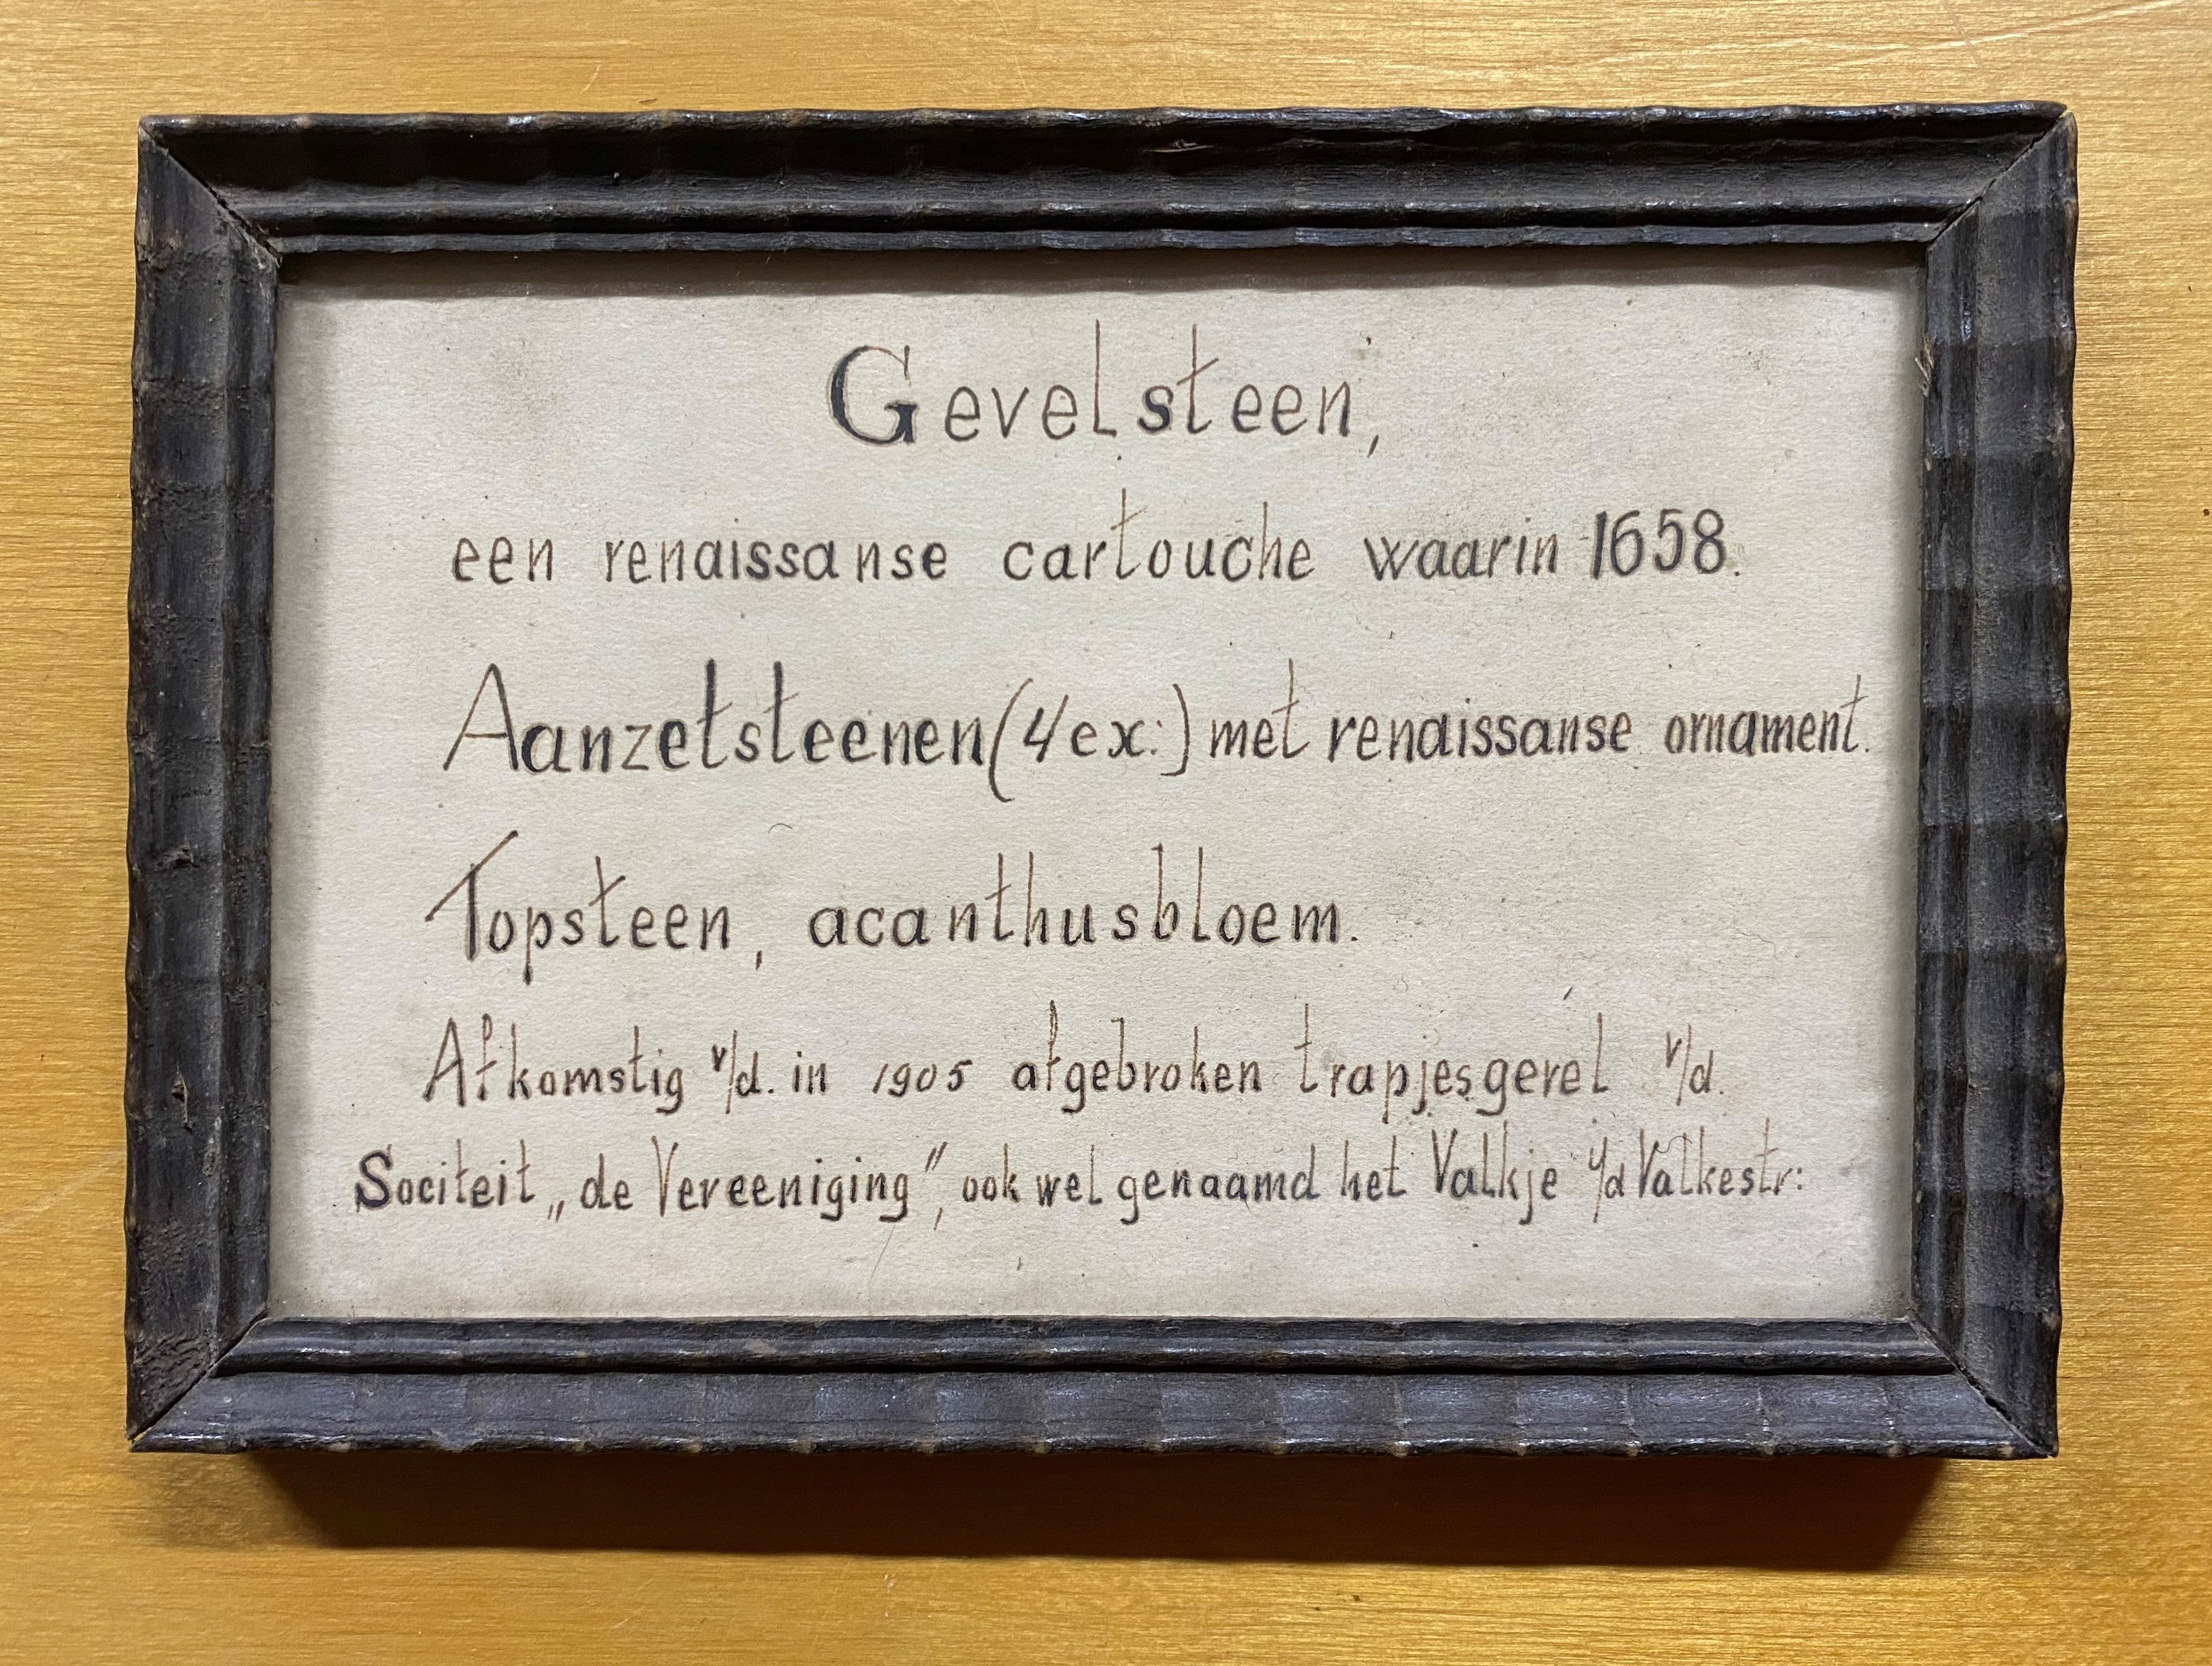 Gevelsteen,
een renaissanse cartouche waarin 1658.
Aanzetsteenen (4 ex:) met renaissanse ornament.
Topsteen, acanthusbloem.
Afkomstig v/d. in 1905 afgebroken trapjesgevel v/d.
Sociteit „de Vereeniging”, ook wel genaamd het Valkje i/d Valkestr: